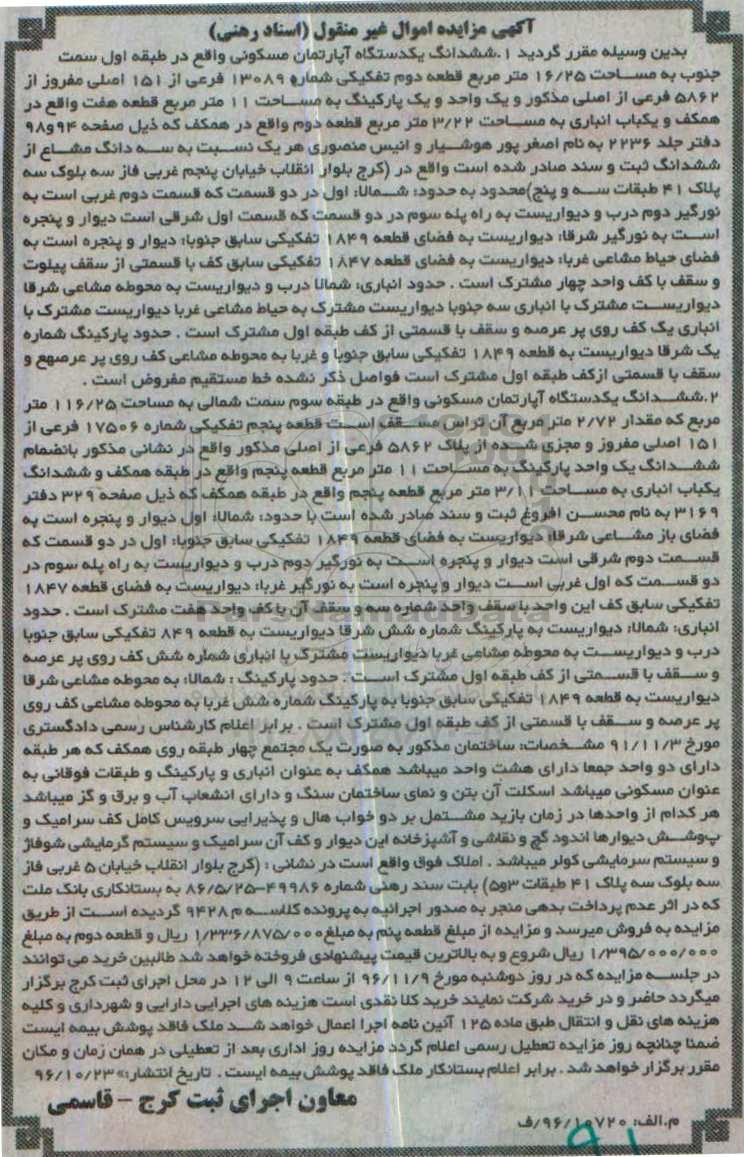 آگهی مزایده اموال غیر منقول (اسناد رهنی)
بدین وسیله مقرر گردید ۱.ششدانگ یکدستگاه آپارتمان مسکونی واقع در طبقه اول سمت
جنوب به مساحت ۱۶/۲۵ متر مربع قطعه دوم تفکیکی شماره ۱۳۰۸۹ فرعی از ۱۵۱ اصلی مفروز از
۵۸۶۲ فرعی از اصلی مذکور و یک واحد و یک پارکینگ به مساحت ۱۱ متر مربع قطعه هفت واقع در
همکف و یکباب انباری به مساحت ۳/۲۲ متر مربع قطعه دوم واقع در همکف که ذیل صفحه ۹۴و۹۸
دفتر جلد ۲۲۳۶ به نام اصغر پور هوشیار و انیس منصوری هر یک نسبت به سه دانگ مشاع از
ششدانگ ثبت و سند صادر شده است واقع در (کرج بلوار انقلاب خیابان پنجم غربی فاز سه بلوک سه
پلاک ۴۱ طبقات سه و پنج)محدود به حدود: شمالا: اول در دو قسمت که قسمت دوم غربی است به
نورگیر دوم درب و دیواریست به راه پله سوم در دو قسمت که قسمت اول شرقی است دیوار و پنجره
است به نورگیر شرقا: دیواریست به فضای قطعه ۱۸۴۹ تفکیکی سابق جنوبا: دیوار و پنجره است به
فضای حیاط مشاعی غربا: دیواریست به فضای قطعه ۱۸۴۷ تفکیکی سابق کف با قسمتی از سقف پیلوت
و سقف با کف واحد چهار مشترک است . حدود انباری: شمالا درب و دیواریست به محوطه مشاعی شرقا
دیواریست مشترک با انباری سه جنوبا دیواریست مشترک به حیاط مشاعی غربا دیواریست مشترک با
انباری یک کف روی پر عرصه و سقف با قسمتی از کف طبقه اول مشترک است . حدود پارکینگ شماره
یک شرقا دیواریست به قطعه ۱۸۴۹ تفکیکی سابق جنوبا و غربا به محوطه مشاعی کف روی پر عرصهع و
سقف با قسمتی ازکف طبقه اول مشترک است فواصل ذکر نشده خط مستقیم مفروض است .
۲.ششدانگ یکدستگاه آپارتمان مسکونی واقع در طبقه سوم سمت شمالی به مساحت ۱۱۶/۲۵ متر
مربع که مقدار ۲/۷۲ متر مربع آن تراس مسقف است قطعه پنجم تفکیکی شماره ۱۷۵۰۶ فرعی از
۱۵۱ اصلی مفروز و مجزی شده از پلاک ۵۸۶۲ فرعی از اصلی مذکور واقع در نشانی مذکور بانضمام
ششدانگ یک واحد پارکینگ به مساحت ۱۱ متر مربع قطعه پنجم واقع در طبقه همکف و ششدانگ
یکباب انباری به مساحت ۳/۱۱ متر مربع قطعه پنجم واقع در طبقه همکف که ذیل صفحه ۳۲۹ دفتر
۳۱۶۹ به نام محسن افروغ ثبت و سند صادر شده است با حدود: شمالا: اول دیوار و پنجره است به
فضای باز مشاعی شرقا: دیواریست به فضای قطعه ۱۸۴۹ تفکیکی سابق جنوبا: اول در دو قسمت که
قسمت دوم شرقی است دیوار و پنجره است به نورگیر دوم درب و دیواریست به راه پله سوم در
دو قسمت که اول غربی است دیوار و پنجره است به نورگیر غربا: دیواریست به فضای قطعه ۱۸۴۷
تفکیکی سابق کف این واحد با سقف واحد شماره سه و سقف آن با کف واحد هفت مشترک است . حدود
انباری: شمالا: دیواریست به پارکینگ شماره شش شرقا دیواریست به قطعه ۸۴۹ تفکیکی سابق جنوبا
درب و دیواریست به محوطه مشاعی غربا دیواریست مشترک با انباری شماره شش کف روی پر عرصه
و سقف با قسمتی از کف طبقه اول مشترک است . حدود پارکینگ : شمالا: به محوطه مشاعی شرقا
دیواریست به قطعه ۱۸۴۹ تفکیکی سابق جنوبا به پارکینگ شماره شش غربا به محوطه مشاعی کف روی
پر عرصه و سقف با قسمتی از کف طبقه اول مشترک است . برابر اعلام کارشناس رسمی دادگستری
مورخ ۹۱/۱۱/۳ مشخصات: ساختمان مذکور به صورت یک مجتمع چهار طبقه روی همکف که هر طبقه
دارای دو واحد جمعا دارای هشت واحد میباشد همکف به عنوان انباری و پارکینگ و طبقات فوقانی به
عنوان مسکونی میباشد اسکلت آن بتن و نمای ساختمان سنگ و دارای انشعاب آب و برق و گز میباشد
هر کدام از واحدها در زمان بازید مشتمل بر دو خواب هال و پذیرایی سرویس کامل کف سرامیک و
پوشش دیوارها اندود گچ و نقاشی و آشپزخانه این دیوار و کف آن سرامیک و سیستم گرمایشی شوفاژ
و سیستم سرمایشی کولر میباشد . املاک فوق واقع است در نشانی : (کرج بلوار انقلاب خیابان ۵ غربی فاز
سه بلوک سه پلاک ۴۱ طبقات ۳و۵) بابت سند رهنی شماره ۴۹۹۸۶-۸۶/۵/۲۵ به بستانکاری بانک ملت
که در اثر عدم پرداخت بدهی منجر به صدور اجرائیه به پرونده کلاسه م ۹۴۲۸ گردیده است از طریق
مزایده به فروش میرسد و مزایده از مبلغ قطعه پنم به مبلغ ۱/۳۳۶/۸۷۵/۰۰۰ ریال و قطعه دوم به مبلغ
۱/۳۹۵/۰۰۰/۰۰۰ ریال شروع و به بالاترین قیمت پیشنهادی فروخته خواهد شد طالبین خرید می توانند
در جلسه مزایده که در روز دوشنبه مورخ ۹۶/۱۱/۹ از ساعت ۹ الی ۱۲ در محل اجرای ثبت کرج برگزار
میگردد حاضر و در خرید شرکت نمایند خرید کلا نقدی است هزینه های اجرایی دارایی و شهرداری و کلیه
هزینه های نقل و انتقال طبق ماده ۱۲۵ آئین نامه اجرا اعمال خواهد شد ملک فاقد پوشش بیمه ایست
ضمنا چنانچه روز مزایده تعطیل رسمی اعلام گردد مزایده روز اداری بعد از تعطیلی در همان زمان و مکان
مقرر برگزار خواهد شد . برابر اعلام بستانکار ملک فاقد پوشش بیمه ایست . تاریخ انتشار:» ۹۶/۱۰/۲۳
معاون اجرای ثبت کرج - قاسمی
م.الف: ۹۶/۱۰۷۲۰/ف
۹۱